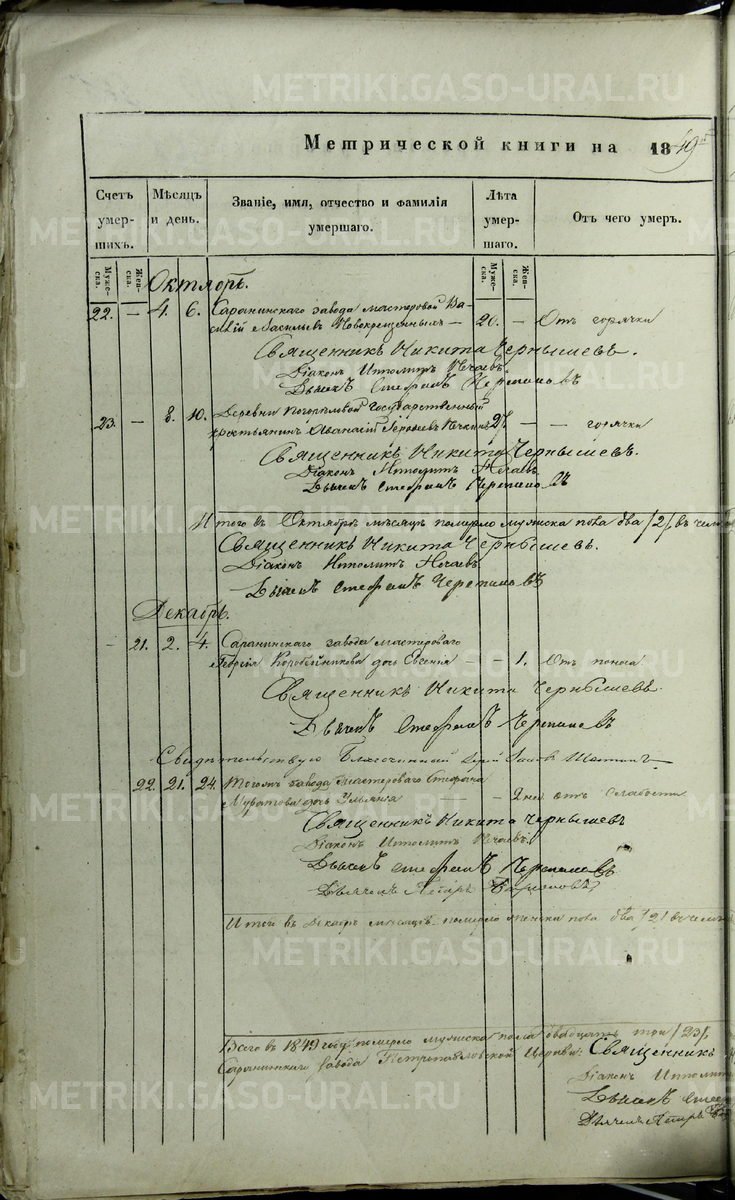 METRIKI.GASO-URAL.RU
Метрической книги на 1849
Счетъ умершихъ.
Мѣсяцъ и день.
Званіе, имя, отчество и фамилія умершаго.
Лѣта умершаго.
Отъ чего умеръ.
Мужеска. Женска.
Мужеска. Женска.
Октябрь.
22. — 4. 6. Саранинскаго завода мастеровой Ва-
силій Васильевъ Новокрещенныхъ — 20. — Отъ горячки
Священникъ Никита Чернышевъ.
Діаконъ Ипполитъ Нечаевъ
Дьячекъ Стефанъ Черепановъ
23. — 8. 10. Деревни Государственный
крестьянинъ Аѳанасій 27 — — горячки
Священникъ Никита Чернышевъ.
Діаконъ Ипполитъ Нечаевъ
Дьячекъ Стефанъ Черепановъ
Итого въ Октябрѣ мѣсяцѣ померло мужеска пола два /2/. въ чемъ
Священникъ Никита Чернышевъ.
Діаконъ Ипполитъ Нечаевъ
Дьячекъ Стефанъ Черепановъ
Декабрь.
— 21. 2. 4. Саранинскаго завода мастероваго
Георгія Коробейникова дочь Евгенія — — 1. Отъ поноса
Священникъ Никита Чернышевъ
Дьячекъ Стефанъ Черепановъ
Свидѣтельствую Благочинный Іерей
22. 21. 24. Тогожъ завода мастероваго Стефана
Муратова дочь Ульянія — — 2 дней отъ слабости
Священникъ Никита Чернышевъ
Діаконъ Ипполитъ Нечаевъ
Дьячекъ Стефанъ Черепановъ
Дьячекъ Петръ
Итого въ Декабрѣ мѣсяцѣ померло женска пола два /2/ въ чемъ
Всего въ 1849 году померло мужеска пола двадцать три /23/.
Саранинскаго завода Петропавловской Церкви: Священникъ
Діаконъ Ипполитъ
Дьячекъ
Дьячекъ Петръ